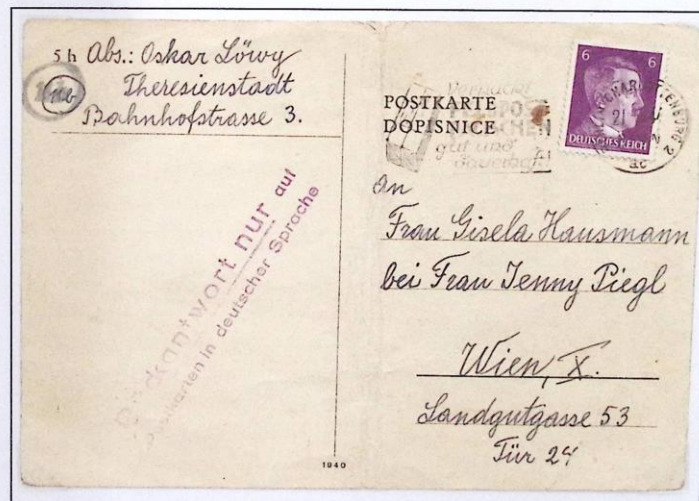 5 h Abs.: Oskar Löwy
Theresienstadt
Bahnhofstrasse 3.
Rückantwort nur auf
Postkarten in deutscher Sprache
1940
POSTKARTE
DOPISNICE
6 6
DEUTSCHES REICH
gut und
21
2
ac
An
Frau Gisela Hausmann
bei Frau Jenny Piegl
Wien, X.
Landgutgasse 53
Tür 24